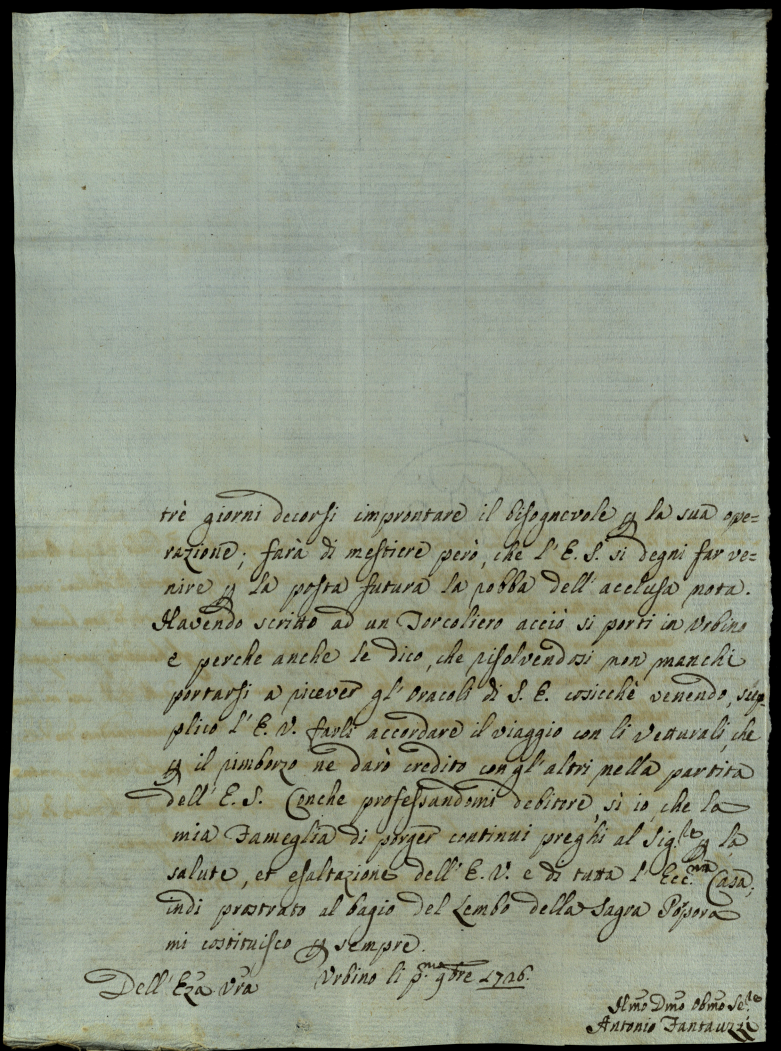 trè giorni decorsi improntare il bisognevole p la sua ope=
razione; farà di mestiere però, che l'E. S. si degni far ve=
nire p la posta futura la robba dell'acclusa nota.
Havendo scritto ad un Torcoliero acciò si porti in Urbino
e perche anche le dico, che risolvendosi non manchi
portarsi a ricever gl'oracoli di S. E. cosicchè venendo, sup=
plico l'E. V. farli accordare il viaggio con li Vetturali, che
p il rimborzo ne darò credito con gl'altri nella partita
dell'E. S. Conche professandomi debitore sì io, che la
mia Fameglia di porger continui preghi al Sig.re p la
salute, et esaltazione dell'E. V. e di tutta l'Ecc.ma Casa;
indi prostrato al bagio del Lembo della Sagra Porpora
mi costituisco p sempre.
Dell'Eza Vra Urbino li p.mo 9bre 1726.
Hmo Dmo Obmo Se.re
Antonio Fantauzzi